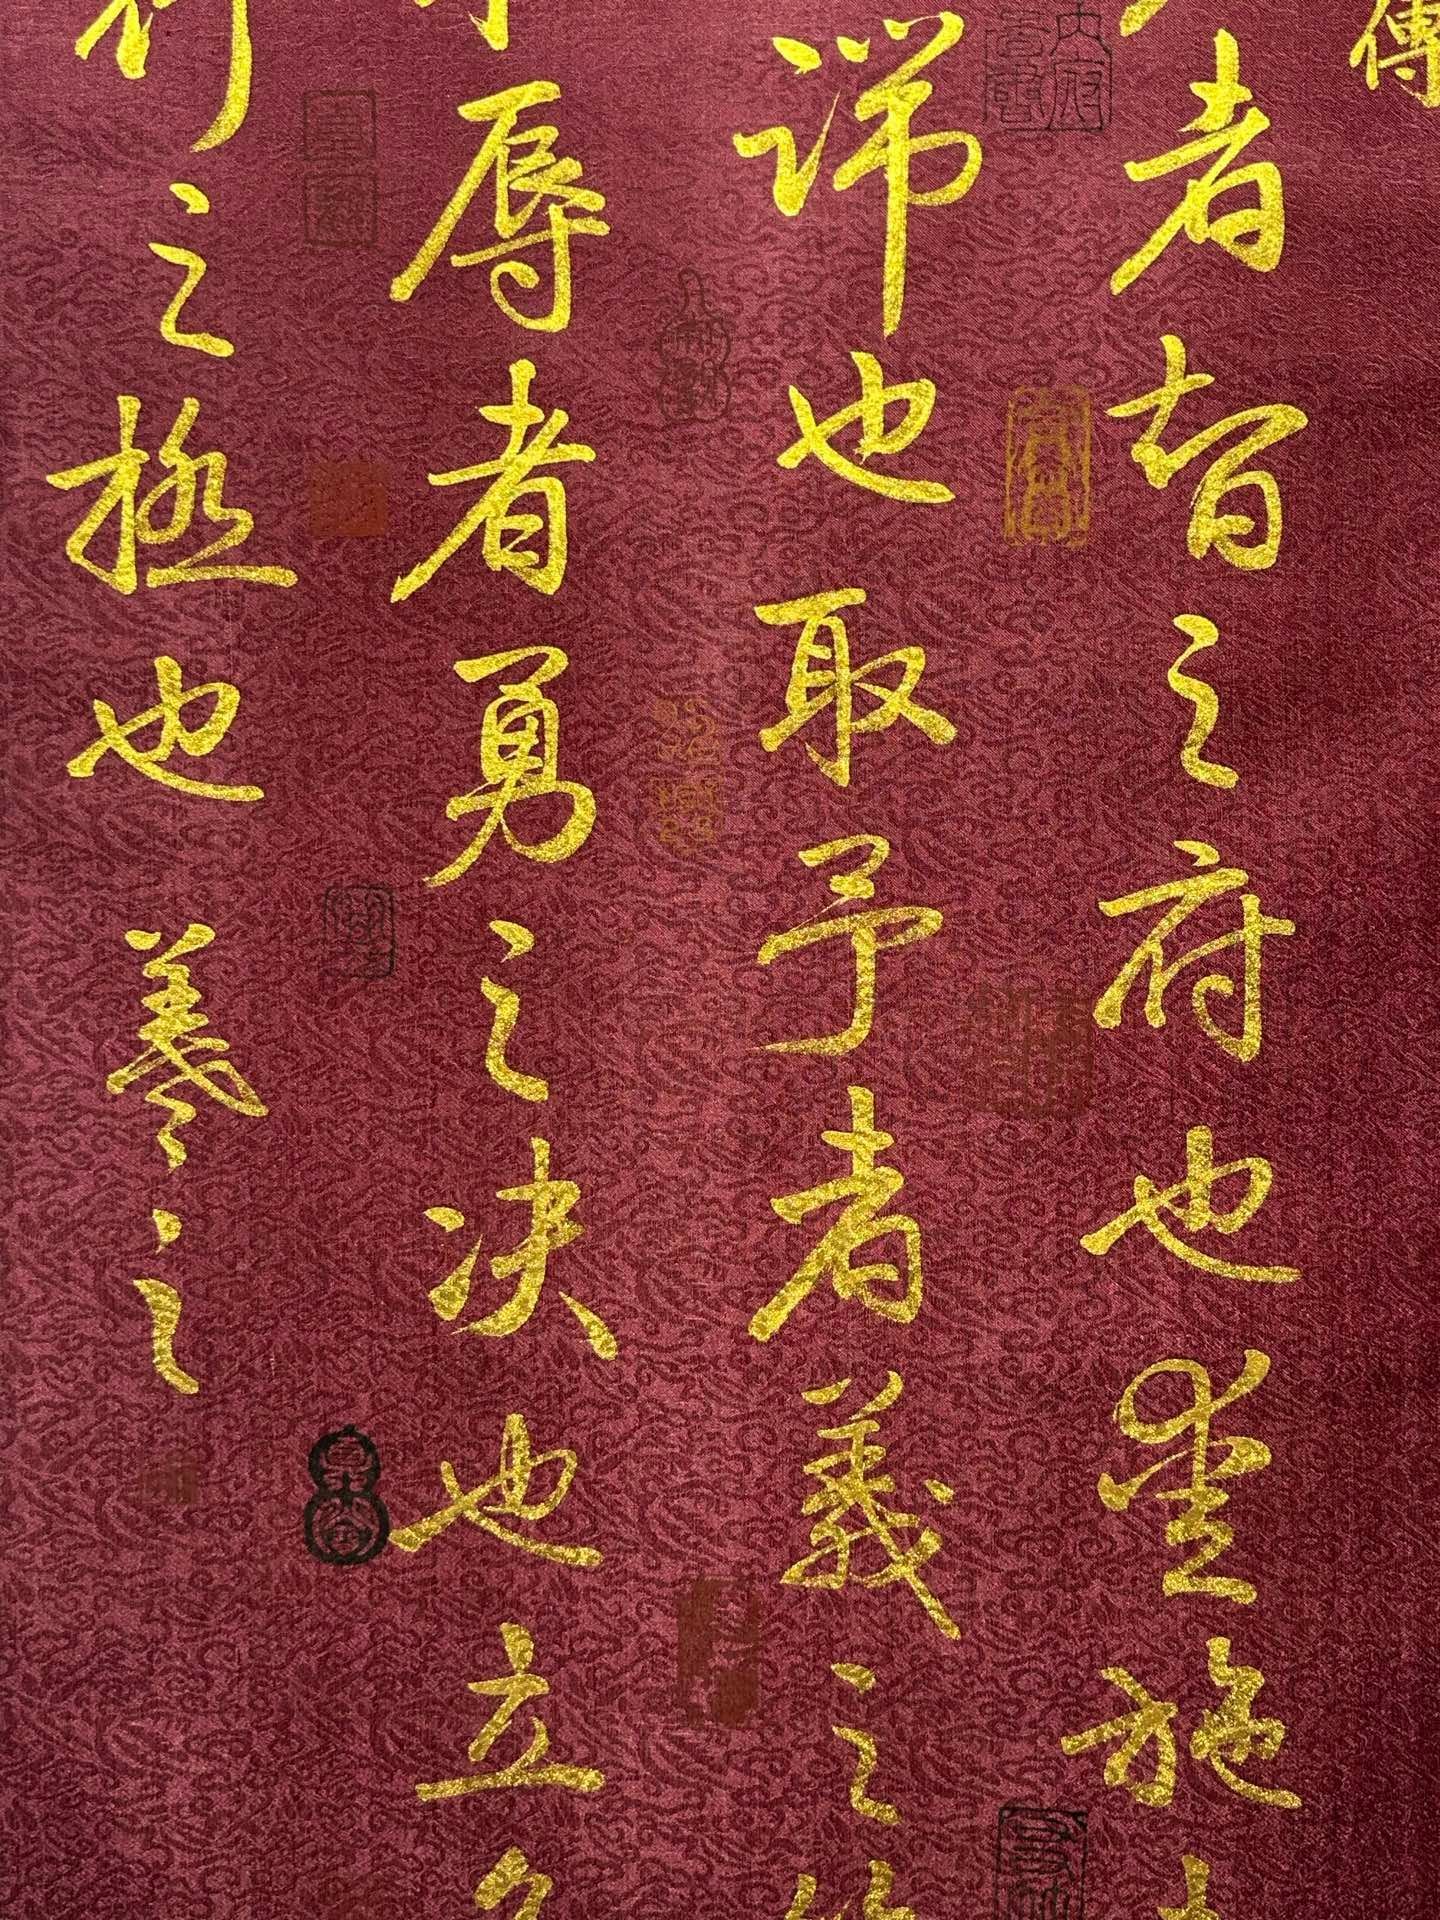 傳
者智之府也愛施
端也取予者義之
辱者勇之决也立
行之極也羲之